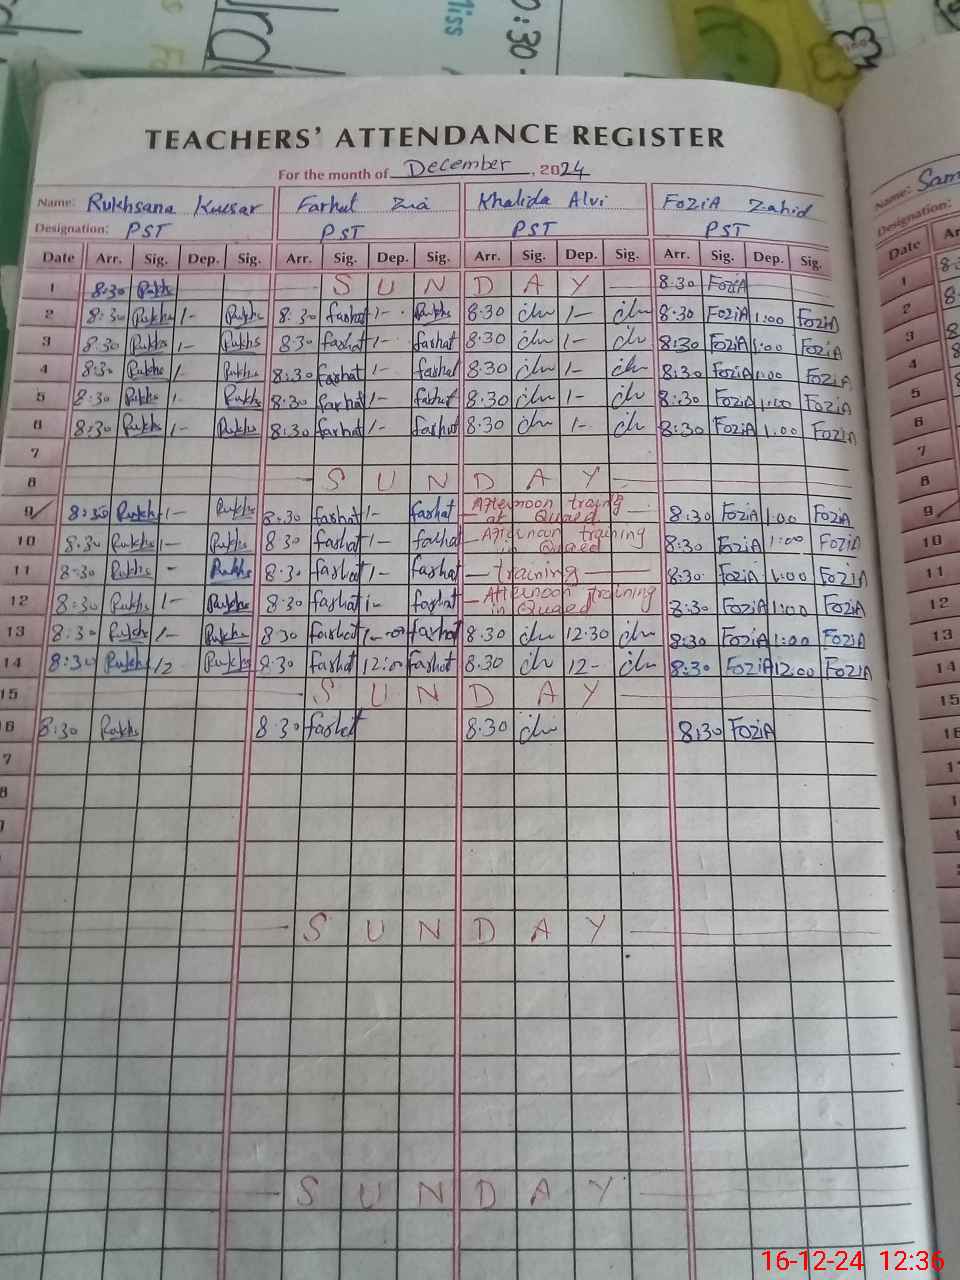 0:30 -
Miss
TEACHERS' ATTENDANCE REGISTER
For the month of December, 2024
Name: Rukhsana Kuesar Farhut Zia Khalida Alvi FoZiA Zahid
Designation: PST PST PST PST
Date Arr. Sig. Dep. Sig. Arr. Sig. Dep. Sig. Arr. Sig. Dep. Sig. Arr. Sig. Dep. Sig.
1 8:30 Rukhs S U N D A Y 8:30 FoziA
2 8:30 Rukhs 1- Rukhs 8:30 farhat 1- Rukhs 8:30 1- 8:30 FoZiA 1:00 FoZiA
3 8:30 Rukhs 1- Rukhs 8:30 farhat 1- farhat 8:30 1- 8:30 FoZiA 1:00 FoZiA
4 8:30 Rukhs 1- Rukhs 8:30 farhat 1- farhat 8:30 1- 8:30 FoZiA 1:00 FoZiA
5 8:30 Rukhs 1- Rukhs 8:30 farhat 1- farhat 8:30 1- 8:30 FoZiA 1:00 FoZiA
6 8:30 Rukhs 1- Rukhs 8:30 farhat 1- farhat 8:30 1- 8:30 FoZiA 1:00 FoZiA
7
8 S U N D A Y
9 8:30 Rukhs 1- Rukhs 8:30 farhat 1- farhat Afternoon traing at Quaed 8:30 FoZiA 1:00 FoZiA
10 8:30 Rukhs 1- Rukhs 8:30 farhat 1- farhat Afternoon training in Quaed 8:30 FoZiA 1:00 FoZiA
11 8:30 Rukhs - Rukhs 8:30 farhat 1- farhat training 8:30 FoZiA 1:00 FoZiA
12 8:30 Rukhs 1- Rukhs 8:30 farhat 1- farhat Afternoon training in Quaed 8:30 FoZiA 1:00 FoZiA
13 8:30 Rukhs 1- Rukhs 8:30 farhat 1-00 farhat 8:30 12:30 8:30 FoZiA 1:00 FoZiA
14 8:30 Rukhs 12 Rukhs 8:30 farhat 12:00 farhat 8:30 12- 8:30 FoZiA 12:00 FoZiA
15 S U N D A Y
16 8:30 Rukhs 8:30 farhat 8:30 8:30 FoZiA
7
8
S U N D A Y
S U N D A Y
Name: Sam
Designation:
Date Ar
1
2
3
4
5
6
7
8
9
10
11
12
13
14
15
16
16-12-24 12:36